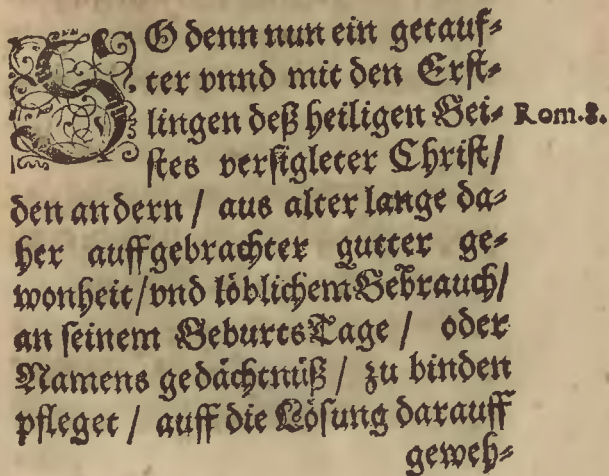 SO denn nun ein getauf⸗
ter vnnd mit den Erst⸗
lingen deß heiligen Gei⸗ Rom.8.
stes versigleter Christ/
den andern / aus alter lange da⸗
her auffgebrachter gutter ge⸗
wonheit/vnd löblichem Gebrauch/
an seinem GeburtsTage / oder
Namens gedächtnüß / zu binden
pfleget / auff die Lösung darauff
geweh⸗